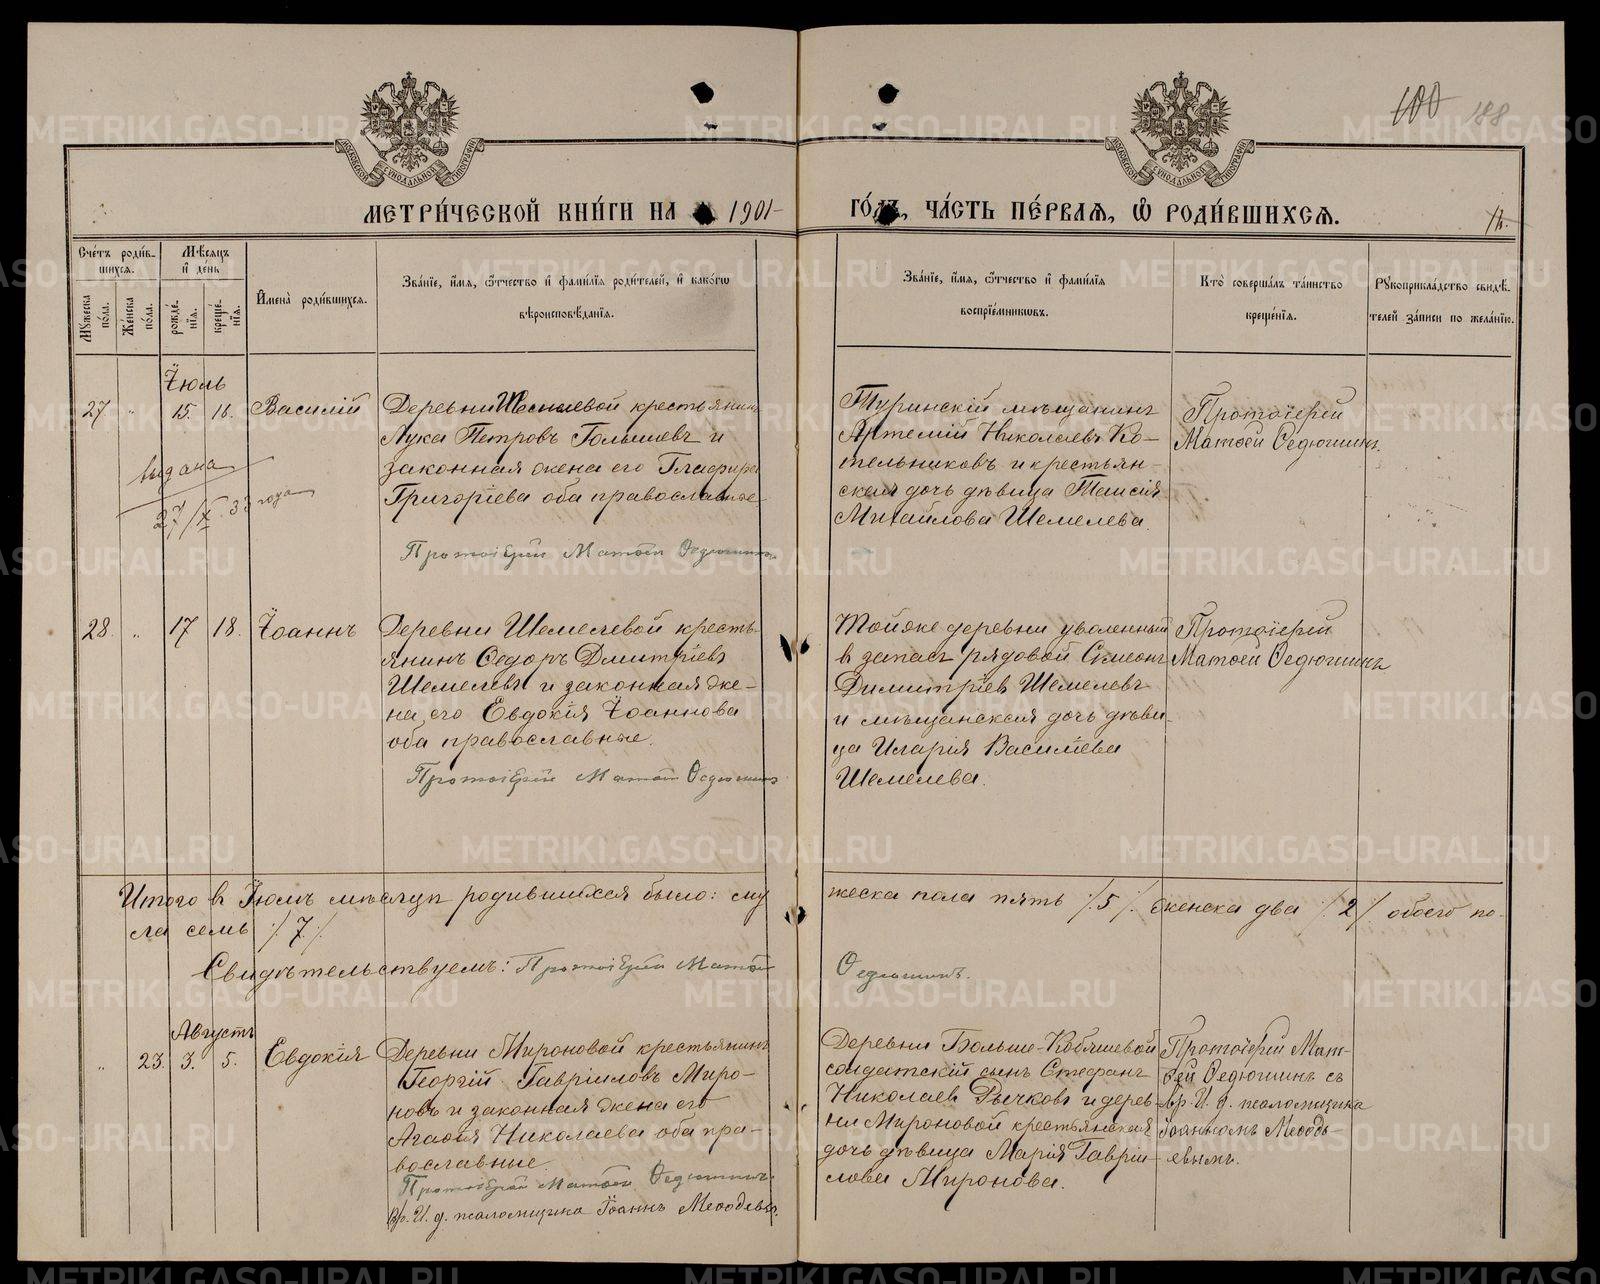 100 188
МОСКОВСКОЙ СѴНОДАЛЬНОЙ ТИПОГРАФІИ
МОСКОВСКОЙ СѴНОДАЛЬНОЙ ТИПОГРАФІИ
МЕТРИ́ЧЕСКОЙ КНИ́ГИ НА 1901 ГО́ДЪ, ЧА́СТЬ ПЕ́РВАЯ, Ѿ РОДИ́ВШИХСЯ.
Сче́тъ роди́в-
шихся.
Мѣ́сяцъ
и҆ де́нь
Мꙋжеска по́ла.
Же́нска по́ла.
рожде́-
нїя.
креще́-
нїя.
И҆мена̀ роди́вшихся.
Зва́нїе, и҆́мя, ѻ҆́тчество и҆ фами́лїя роди́телей, и҆ како́гѡ
вѣроисповѣ́данїя.
Зва́нїе, и҆́мя, ѻ҆́тчество и҆ фами́лїя
воспрїе́мникѡвъ.
Кто̀ соверша́лъ та́инство
креще́нїя.
Рꙋкоприкла́дство свидѣ́-
телей за́писи по жела́нїю.
Іюль
27 " 15. 16. Василій
Деревни Шемелевой крестьянинъ
Лука Петровъ Голышевъ и
законная жена его Глафира
Григоріева оба православные
Протоіерей Матѳей Ѳедюшинъ
выдана
27/X 33 года
Туринскій мѣщанинъ
Артемій Николаевъ Ко-
тельниковъ и крестьян-
ская дочь дѣвица Таисія
Михаилова Шемелева.
Протоіерей
Матѳей Ѳедюшинъ
28. " 17 18. Іоаннъ
Деревни Шемелевой кресть-
янинъ Ѳедоръ Димитріевъ
Шемелевъ и законная же-
на его Евдокія Іоаннова
оба православные.
Протоіерей Матѳей Ѳедюшинъ
Той же деревни уволенный
в запас рядовой Симеонъ
Димитріев Шемелевъ
и мѣщанская дочь дѣви-
ца Иларія Василіева
Шемелева.
Протоіерей
Матѳей Ѳедюшинъ
Итого в Іюлѣ мѣсяцѣ родившихся было: му
жеска пола пять /5/. женска два /2/ обоего по-
ла семь /7/.
Свидѣтельствуемъ: Протоіерей Матѳей
Ѳедюшинъ.
Августъ
" 23. 3. 5. Евдокія
Деревни Мироновой крестьянинъ
Георгій Гавріиловъ Миро-
новъ и законная жена его
Агаѳія Николаева оба пра-
вославные.
Протоіерей Матѳей Ѳедюшинъ
Вр. И. д. псаломщика Іоаннъ Меѳодьевъ.
Деревни Больше-Кобяшевой
солдатскій сынъ Стефанъ
Николаев Рычковъ и дерев-
ни Мироновой крестьянская
дочь дѣвица Марія Гавріи-
лова Миронова.
Протоіерей Мат-
ѳей Ѳедюшинъ съ
Вр. И. д. псаломщика
Іоанномъ Меѳодь-
евымъ.
METRIKI.GASO-URAL.RU